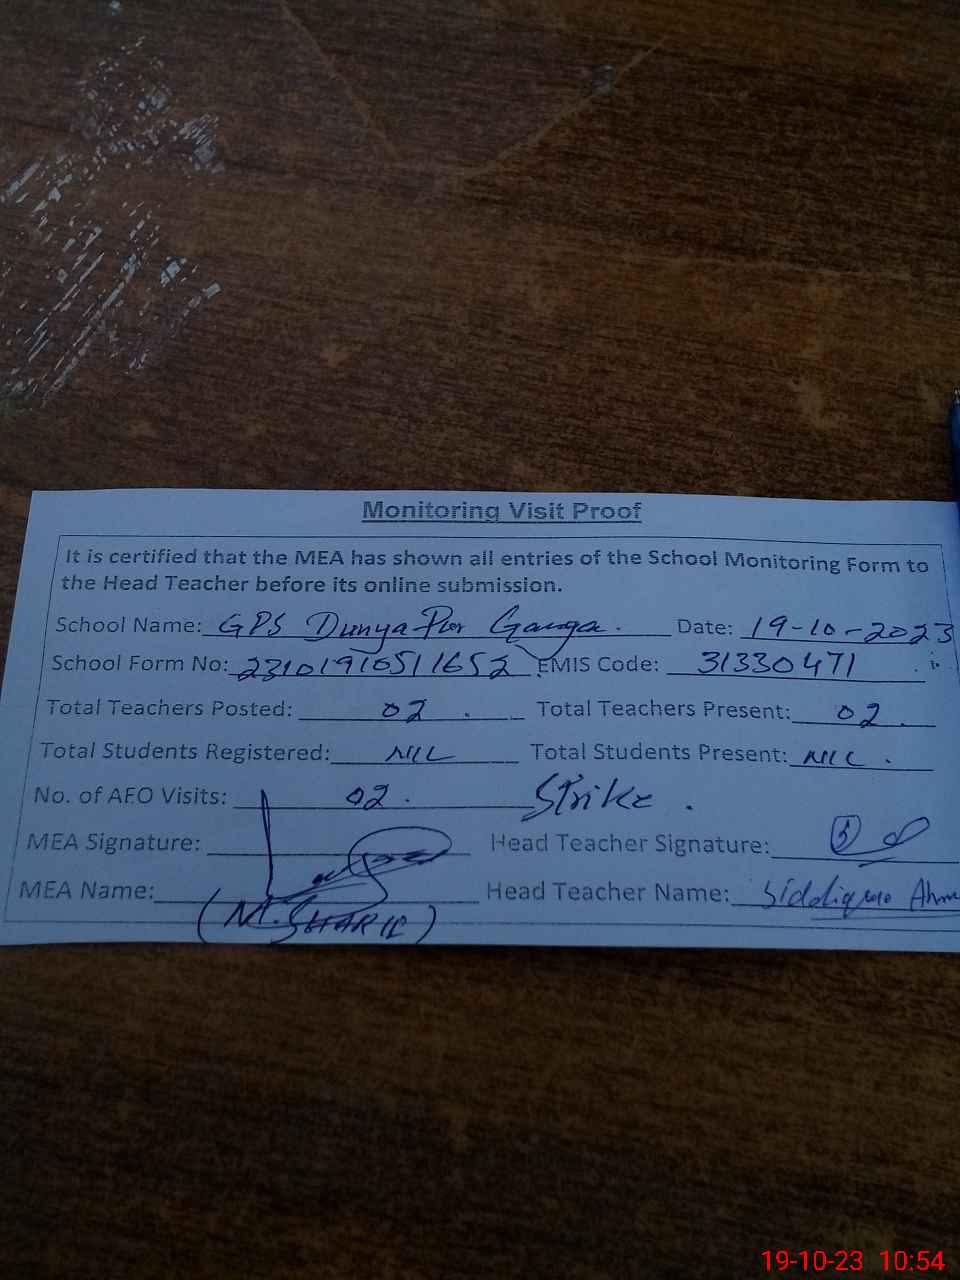 Monitoring Visit Proof
It is certified that the MEA has shown all entries of the School Monitoring Form to
the Head Teacher before its online submission.
School Name: GPS Dunya Pur Ganga. Date: 19-10-2023
School Form No: 23101910511652 EMIS Code: 31330471
Total Teachers Posted: 02. Total Teachers Present: 02.
Total Students Registered: NIL Total Students Present: NIL.
No. of AEO Visits: 02. Strike.
MEA Signature: Head Teacher Signature:
MEA Name: Head Teacher Name: Siddique Ahm
(M. SHARIF)
19-10-23 10:54